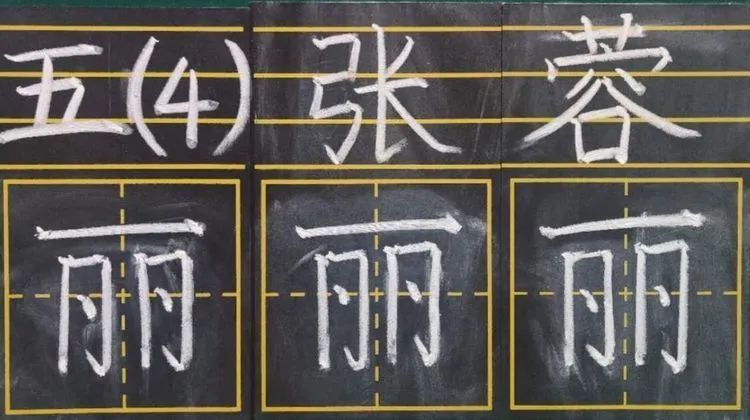 五(4) 张蓉
丽 丽 丽